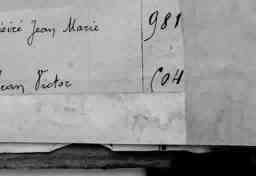 Jean Marie 981
Jean Victor 604